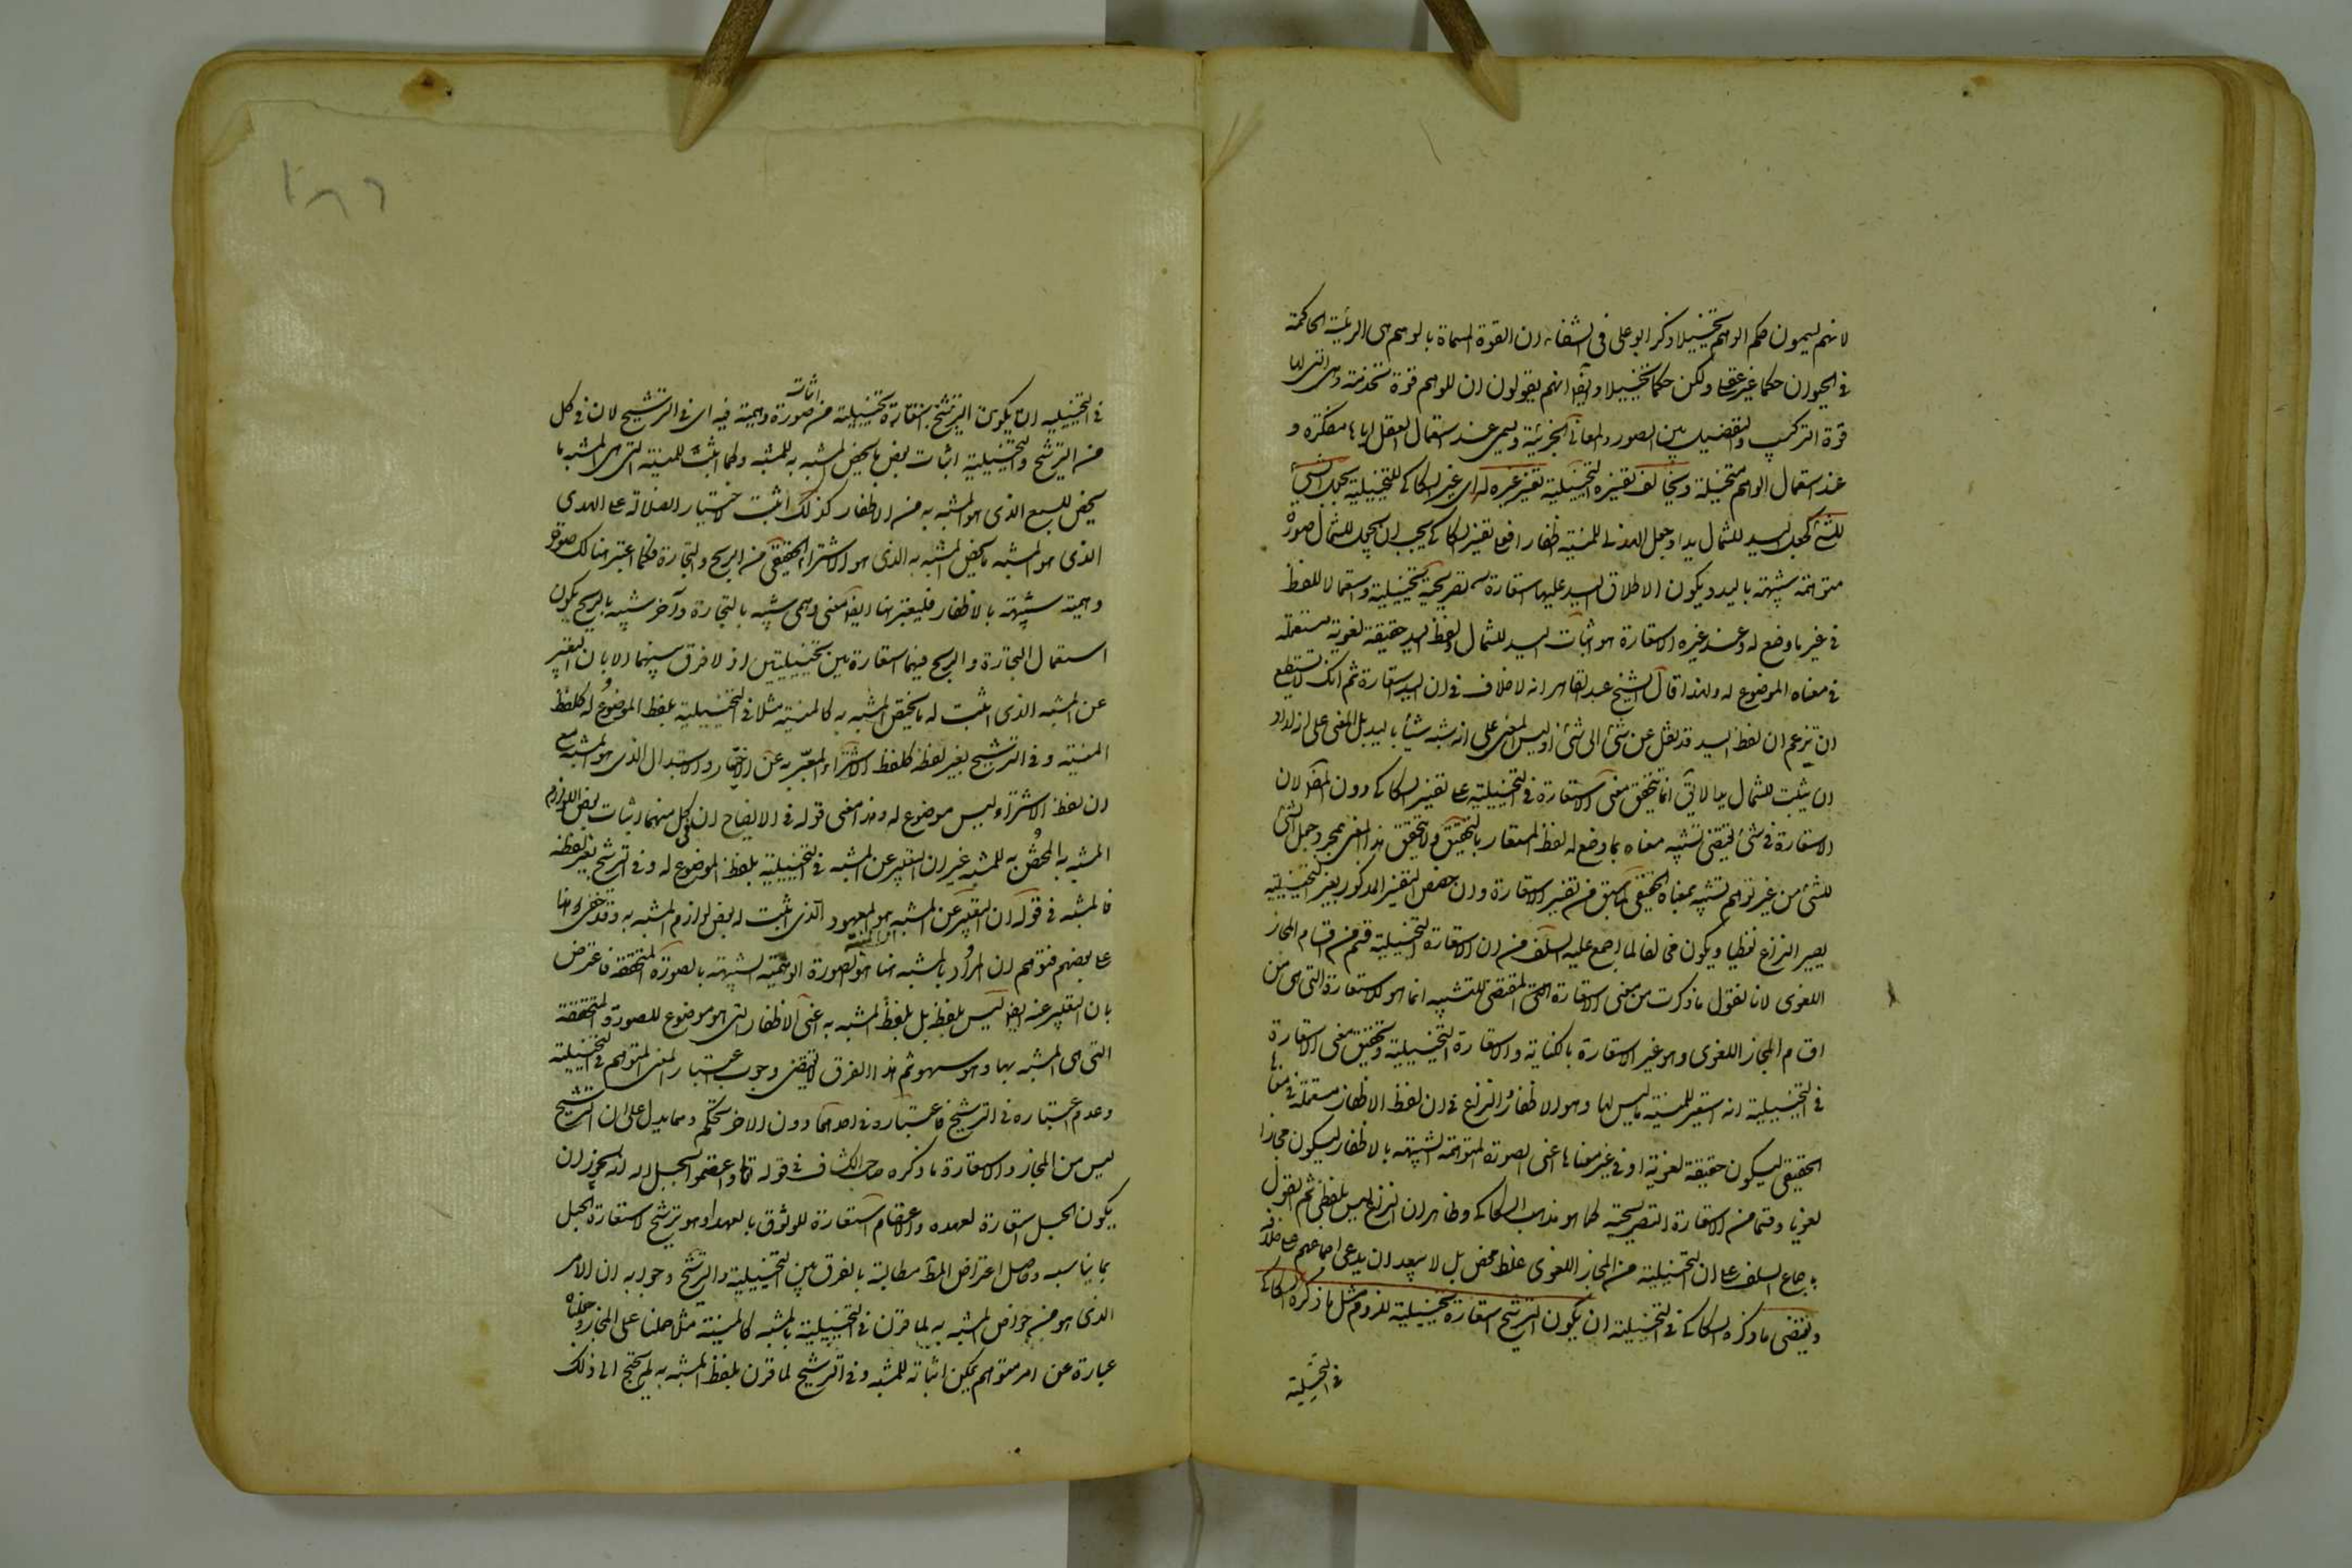 لانهم ليسمون حكم الوهم تخييلا ذكر ابو على فى الشفاء ان القوة المسماة بالوهم هى الرئيسة الحاكمة
فى الحيوان حكما غير عقلى ولكن حكما تخييلا وايضا انهم يقولون ان للوهم قوة تخدمه وهى التى لها
قوة التركيب والتفصيل بين الصور والمعانى الجزئية وليسمى عند استعمال العقل اياها مفكرة و
عند استعمال الوهم متخيلة ويخالف تفسيره التخييلية تفسير غيره لها اى غير السكاكى للتخييلية بجعل الشئ
للشئ كجعل اليد للشمال يدا وجعل لبيد للمنية اظفارا فعلى تفسير السكاكى يجب ان يجعل للشمال صورة
متوهمة شبيهة باليد ويكون اطلاق اليد عليها استعارة تصريحية تخييلية واستعمالا للفظ
فى غير ما وضع له وعند غيره الاستعارة هو اثبات اليد للشمال ولفظ اليد حقيقة لغوية مستعملة
فى معناه الموضوع له ولهذا قال الشيخ عبد القاهر انه لا خلاف فى ان اليد استعارة ثم انك لا تستطيع
ان تزعم ان لفظ اليد قد نقل عن شئ الى شئ اذ ليس المعنى على انه شبه شيئا باليد بل المعنى على انه اراد
ان يثبت للشمال يدا لا يق انما يتحقق معنى الاستعارة فى التخييلية على تفسير السكاكى دون المص لان
الاستعارة فى شئ يقتضى تشبيه معناه بما وضع له لفظ المستعار بالتحقيق ولا يتحقق هذا المعنى بمجرد جعل الشئ
للشئ من غير توهم تشبيه بمعناه الحقيقى لما سبق من تفسير الاستعارة وان خصص التفسير المذكور بغير التخييلية
يصير النزاع لفظيا ويكون مخالفا لما اجمع عليه السلف من ان الاستعارة التخييلية قسم من اقسام المجاز
اللغوى لانا نقول ما ذكرت من معنى الاستعارة المقتضى للتشبيه انما هو للاستعارة التى هى من
اقسام المجاز اللغوى وهو غير الاستعارة بالكناية والاستعارة التخييلية وتحقيق معنى الاستعارة
فى التخييلية انه استعير للمنية ما ليس لها وهو الاظفار والنزاع فى ان لفظ الاظفار مستعملة فى معناها
الحقيقى ليكون حقيقة لغوية او فى غير معناها اعنى الصورة المتوهمة الشبيهة بالاظفار ليكون مجازا
لغويا وقسما من الاستعارة التصريحية كما هو مذهب السكاكى وظاهر ان النزاع ليس بلفظى ثم القول
باجماع السلف على ان التخييلية من المجاز اللغوى غلط محض بل لا يبعد ان يدعى اجماعهم على خلافه
ويقتضى ما ذكره السكاكى فى التخييلية ان يكون الترشيح استعارة تخييلية للزوم مثل ما ذكره السكاكى
فى التخييلية
فى التخييلية ان يكون الترشيح استعارة تخييلية من اثبات صورة وهمية فيه اى فى الترشيح لان فى كل
من الترشيح والتخييلية اثبات بعض ما يخص المشبه به للمشبه فكما اثبت للمنية التى هى المشبه ما
يخص السبع الذى هو المشبه به من الاظفار كذلك اثبت لاختيار الضلالة على الهدى
الذى هو المشبه ما يخص المشبه به الذى هو الاشتراء الحقيقى من الربح والتجارة فكما اعتبر هنالك صورة
وهمية شبيهة بالاظفار فليعتبر هنا ايضا معنى وهمى شبيه بالتجارة وآخر شبيه بالربح ليكون
استعمال التجارة والربح فيهما استعارتين تخييليتين اذ لا فرق بينهما الا بان التعبير
عن المشبه الذى اثبت له ما يختص المشبه به كالمنية مثلا فى التخييلية بلفظ الموضوع له كلفظ
المنية وفى الترشيح بغير لفظه كلفظ الاشتراء المعبر به عن الاختيار والاستبدال الذى هو المشبه مع
ان لفظ الاشتراء ليس موضوع له وهذا معنى قوله فى الايضاح ان فى كل منهما اثبات بعض اللوازم
المشبه به المختص به للمشبه غير ان التعبير عن المشبه فى التخييلية بلفظ الموضوع له وفى الترشيح بغير لفظه
فالمشبه فى قوله ان التعبير عن المشبه هو المعهود الذى اثبت له بعض لوازم المشبه به وقد خفى هذا
على بعضهم فتوهم ان المراد بالمشبه ههنا هو الصورة الوهمية الشبيهة بالصورة المتحققة فاعترض
بان التعبير عنه ايضا ليس بلفظه بل بلفظ المشبه به اعنى الاظفار التى هو موضوع للصورة المتحققة
التى هى المشبه بها وهو سهو ثم هذا الفرق لا يقتضى وجوب اعتبار المعنى المتوهم فى التخييلية
وعدم اعتباره فى الترشيح فاعتباره فى احدهما دون الاخر تحكم ومما يدل على ان الترشيح
ليس من المجاز والاستعارة ما ذكره صاحب الكشاف فى قوله تعالى واعتصموا بحبل الله انه يجوز ان
يكون الحبل استعارة لعهده والاعتصام استعارة للوثوق بالعهد او هو ترشيح لاستعارة الحبل
بما يناسبه وحاصل اعتراض المص مطالبة بالفرق بين التخييلية والترشيح وجوابه ان الامر
الذى هو من خواص المشبه به لما قرن فى التخييلية بالمشبه كالمنية مثلا حملناه على المجاز وجعلناه
عبارة عن امر متوهم يمكن اثباته للمشبه وفى الترشيح لما قرن بلفظ المشبه به لم يحتج الى ذلك